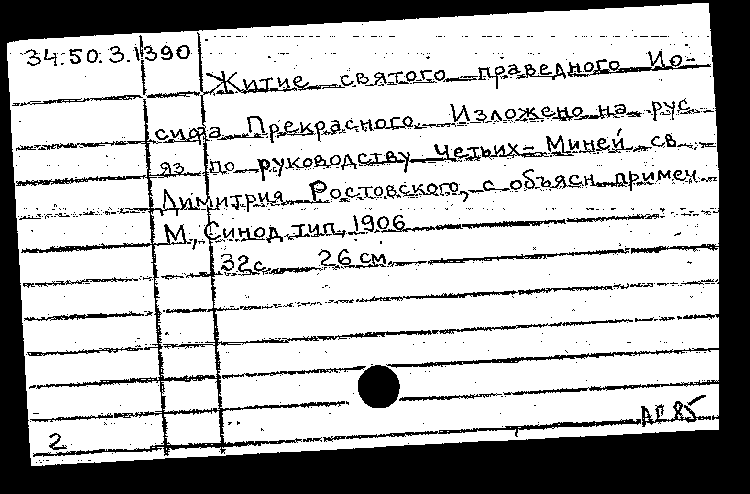 34:50.3.1390
Житие святого праведного Ио-
сифа Прекрасного. Изложено на рус
яз по руководству Четьих-Миней св
Димитрия Ростовского, с объясн примеч
М., Синод. тип., 1906
32с 26 см.
2 АП 85